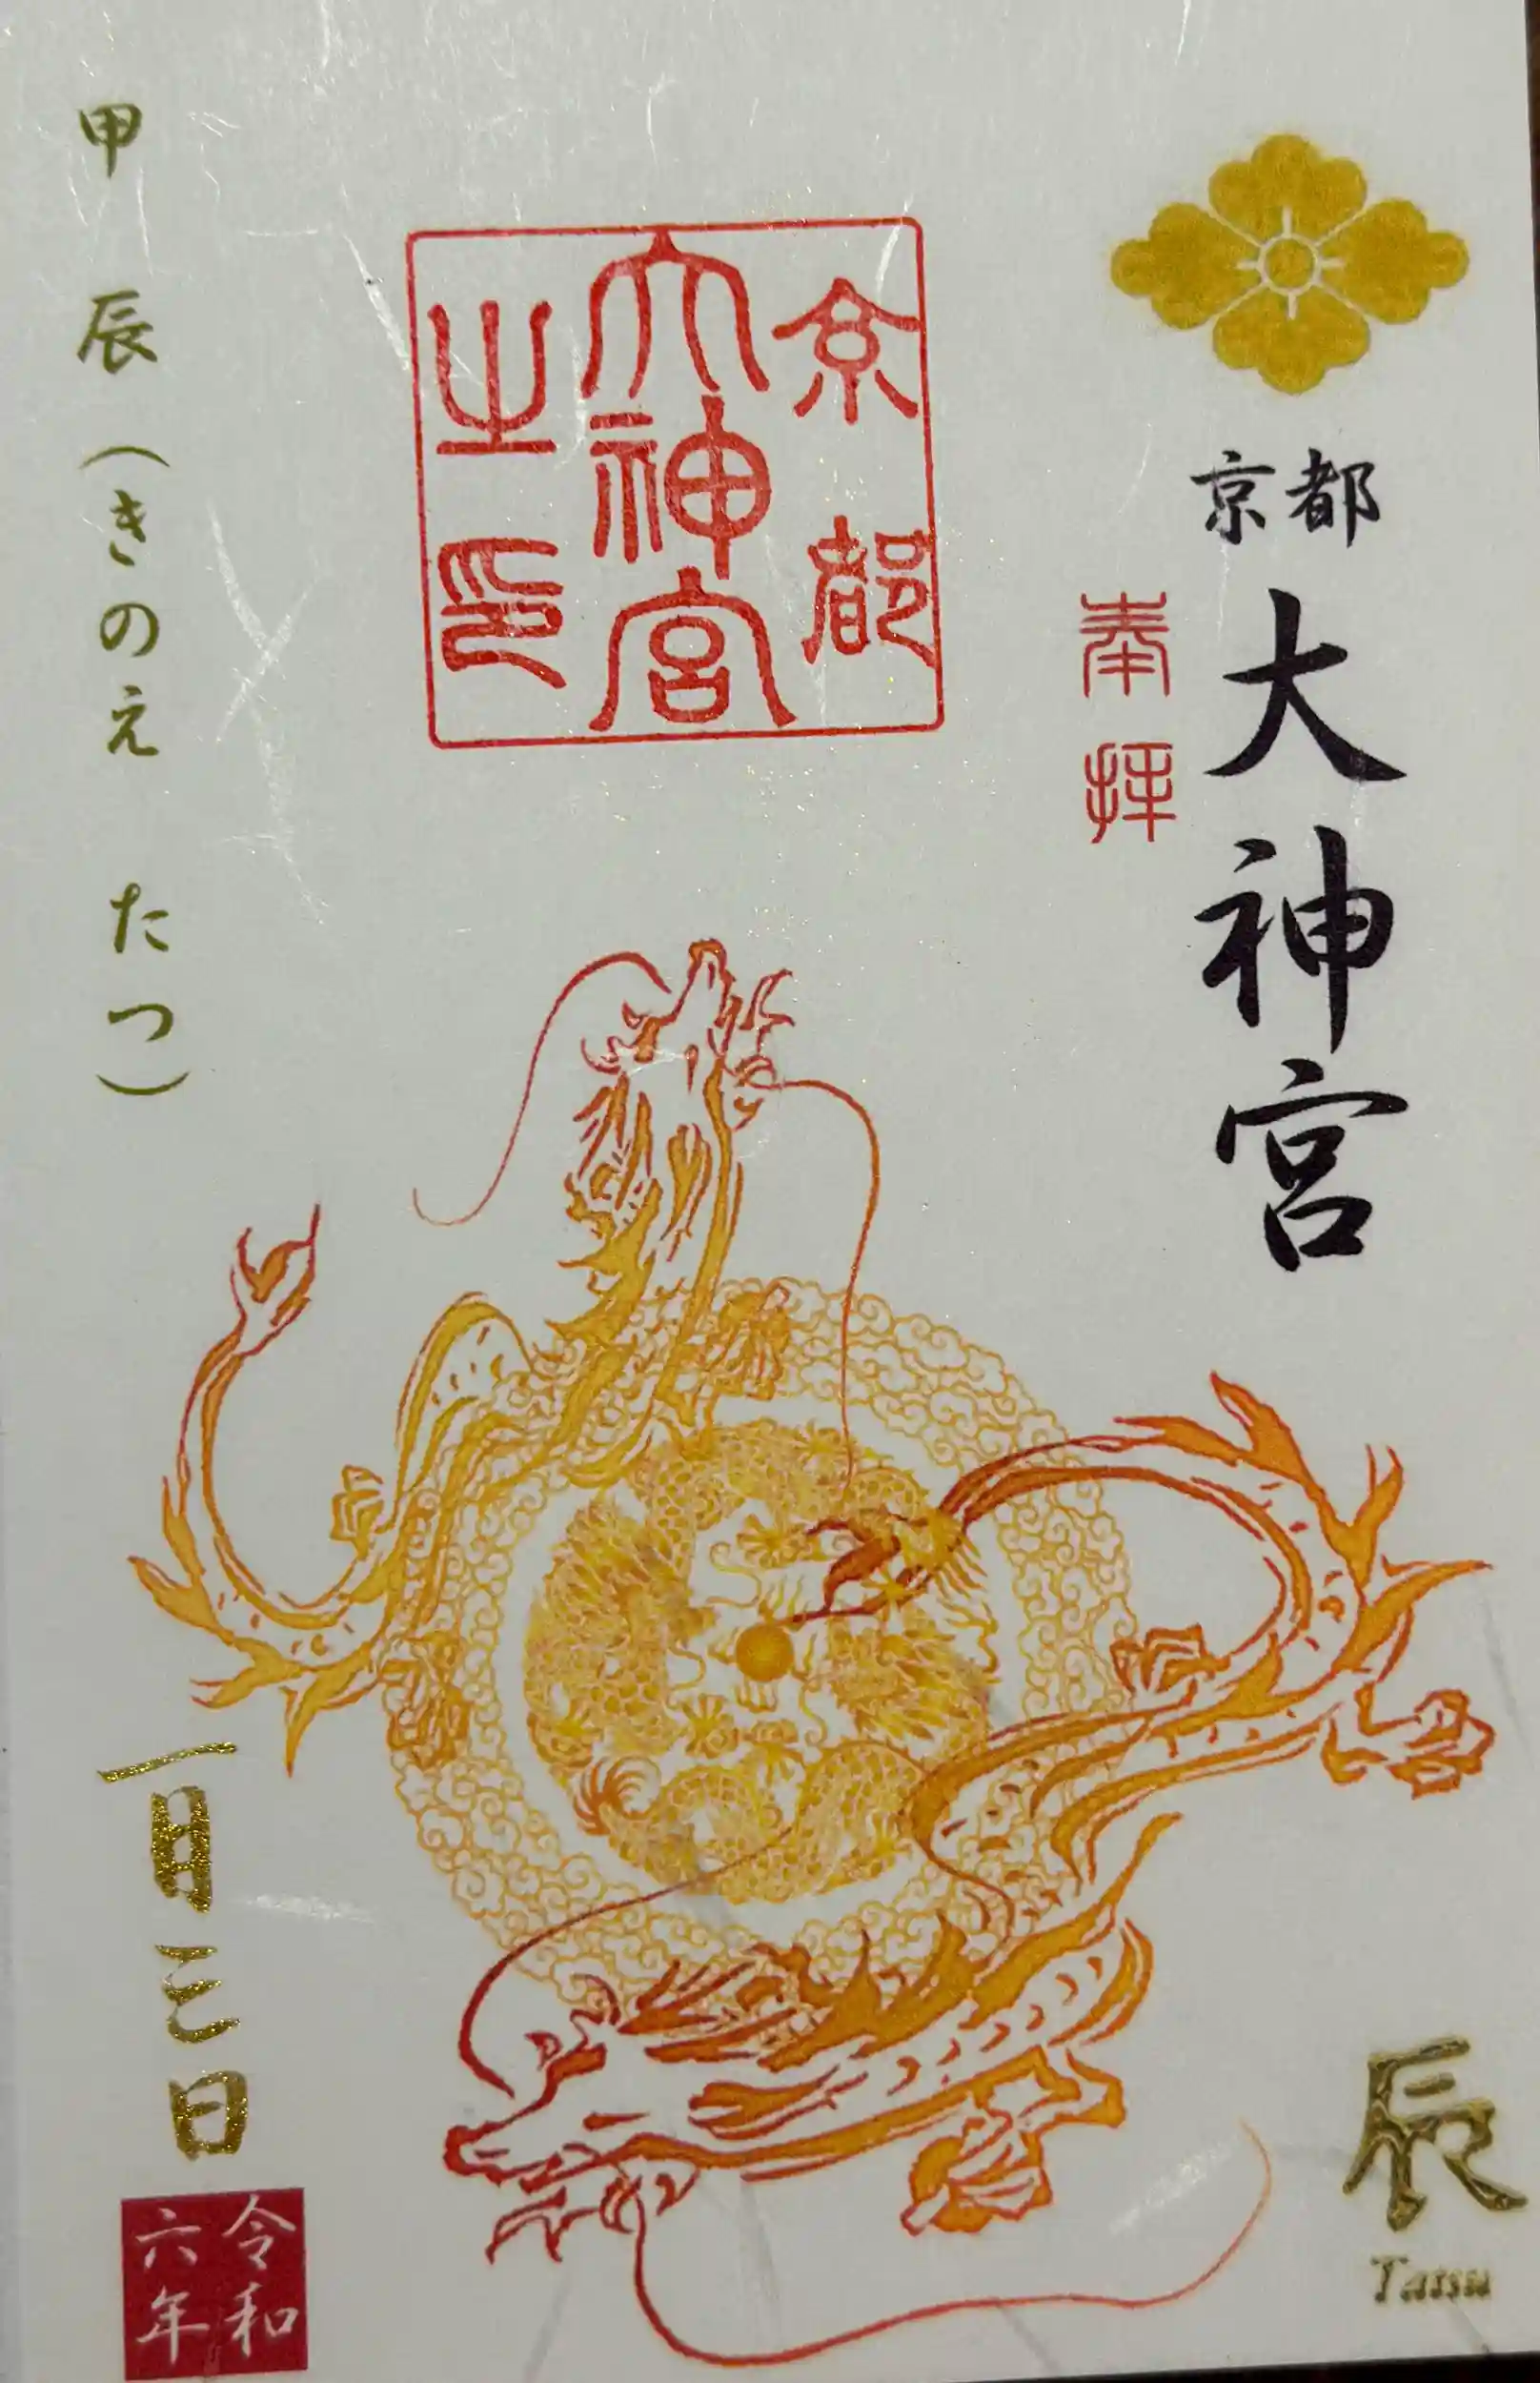 京都
大神宮
奉拝
京都
大神宮
之印
甲辰(きのえ たつ)
一月三日
令和
六年
辰
Tatsu